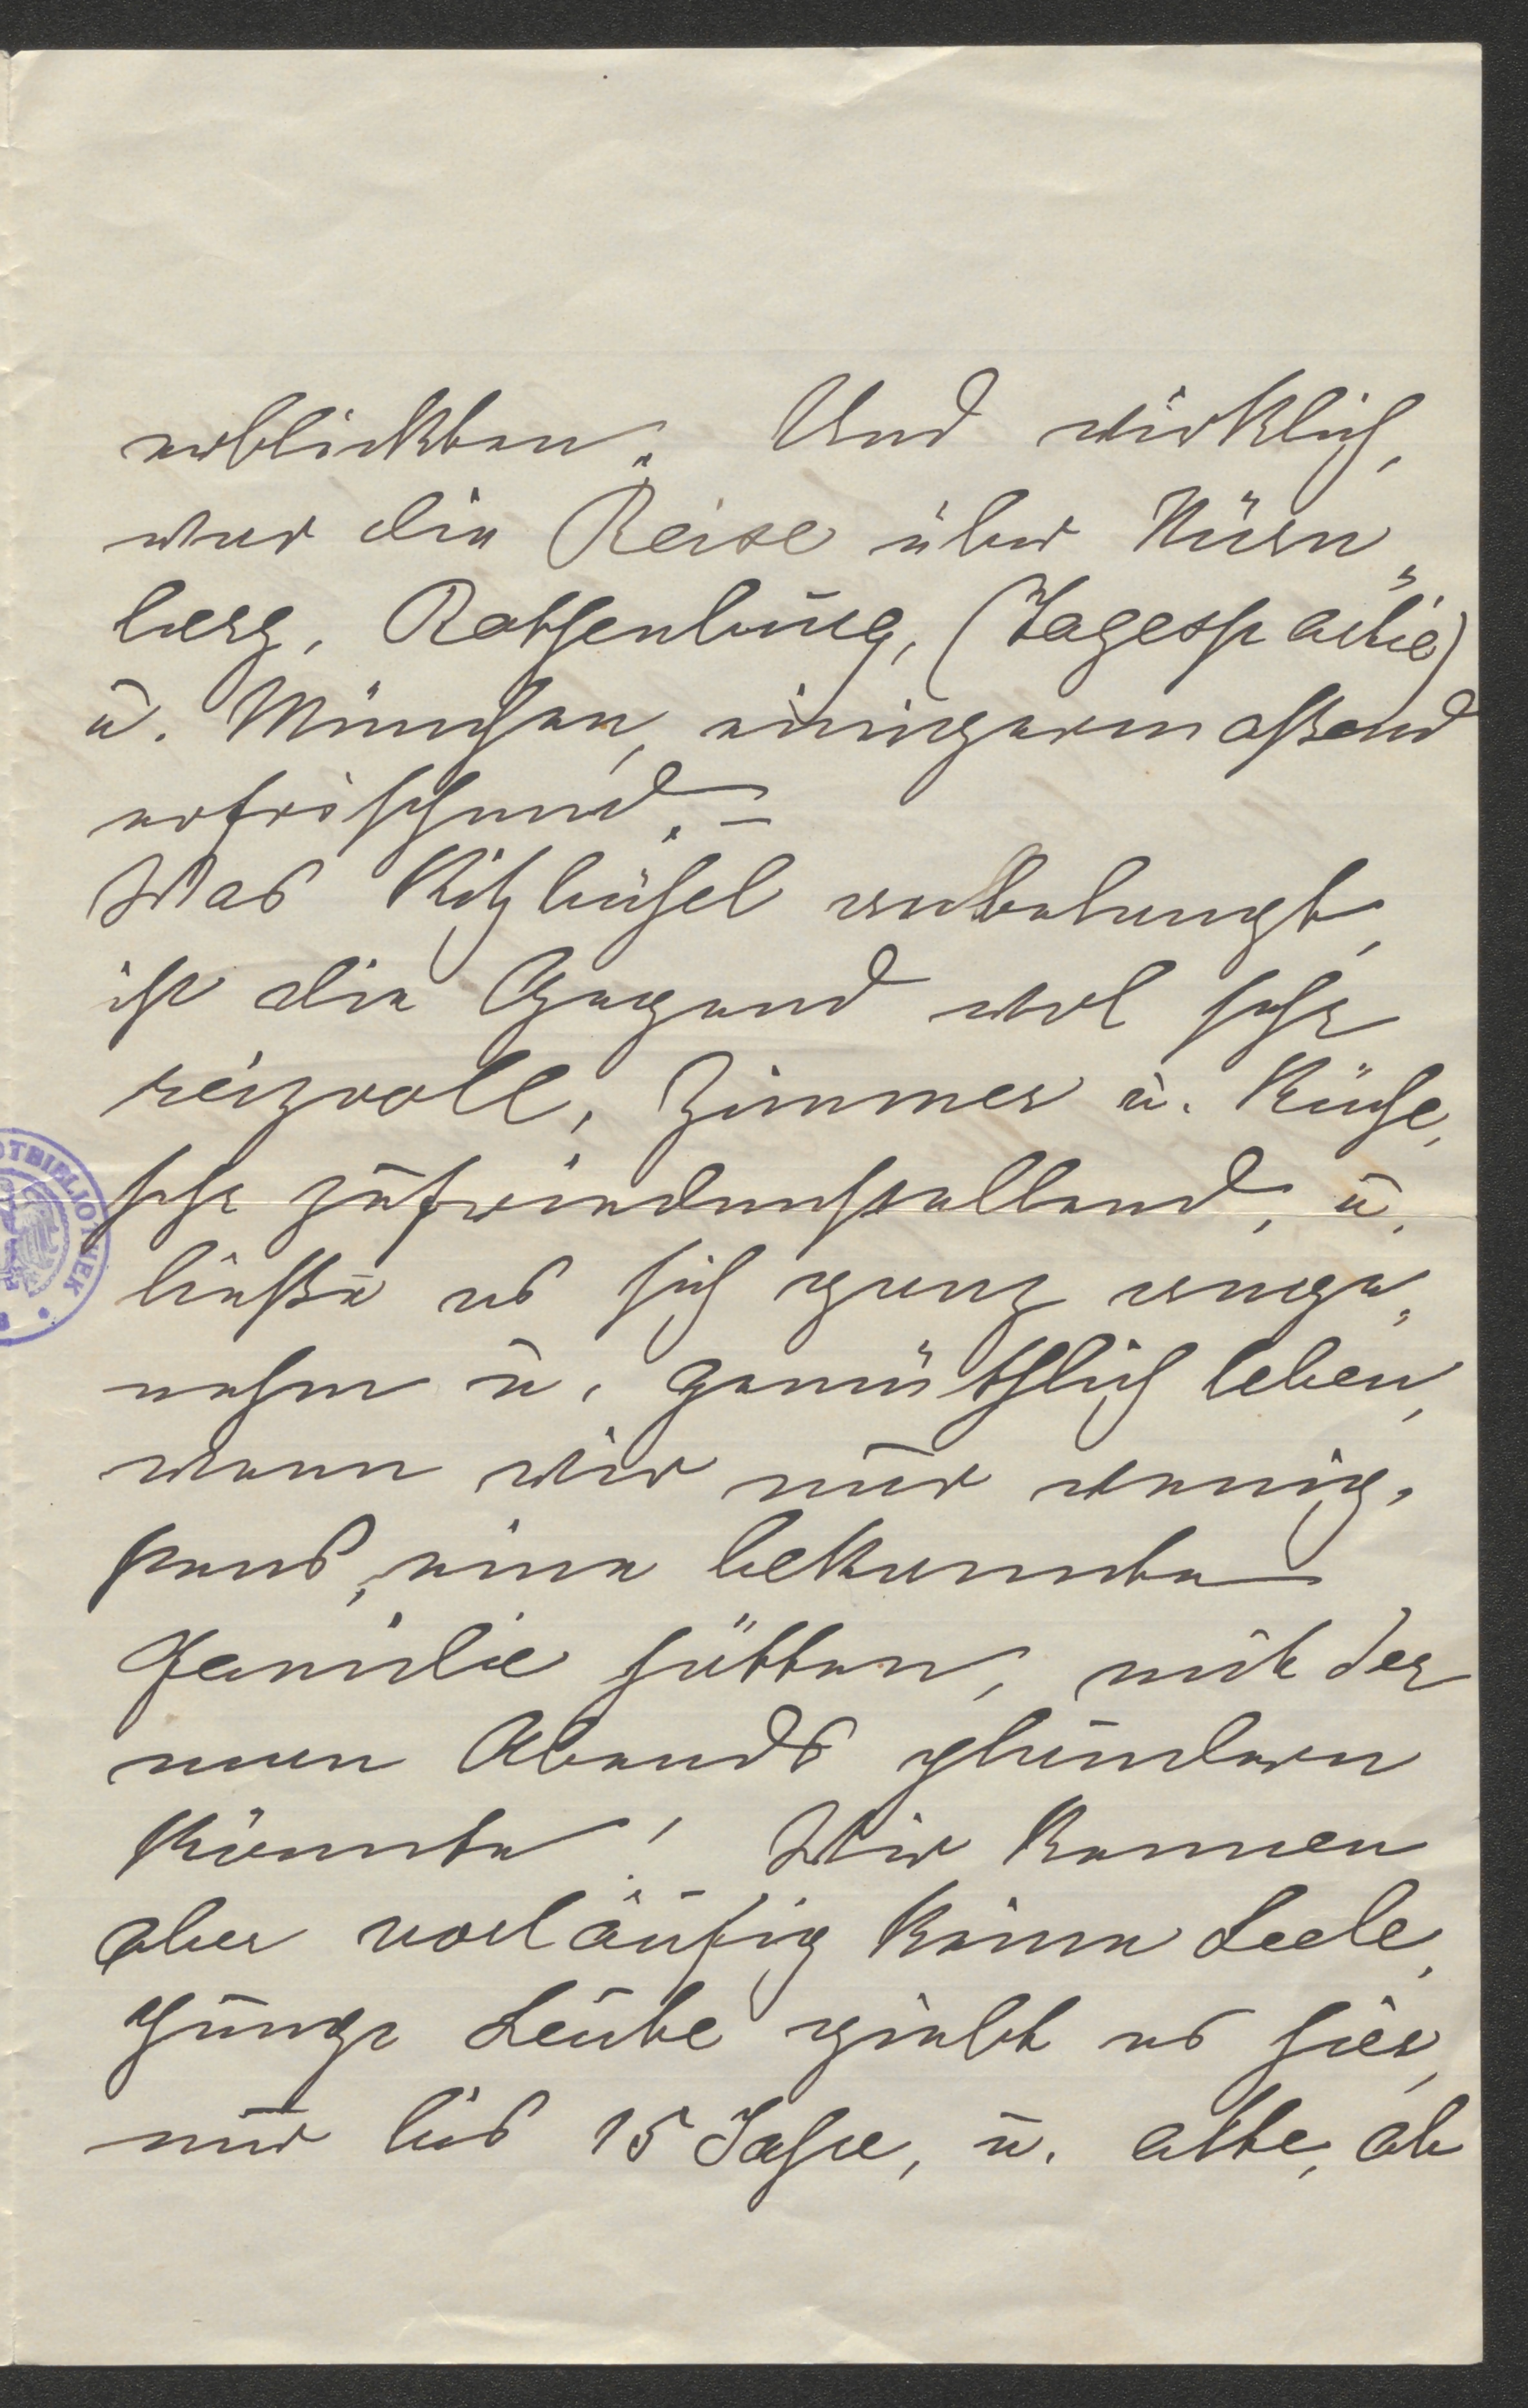 erblickten. Und wirklich,
war die Reise über Nürn„
berg, Rothenburg, (Tagespartie)
u. München, einigermaßend
erfrischend. –
Was Kitzbühel anbelangt,
ist die Gegend wol sehr
reizvoll, Zimmer u. Küche,
sehr zufriedenstellend, u.
ließe es sich ganz ange„
nehm u. gemüthlich leben,
wenn wir nur wenig„
stens, eine bekannte
Familie hätten, mit der
man Abends plaudern
könnte! Wir kennen
aber vorläufig keine Seele,
junge Leute giebt es hier,
nur bis 15 Jahre, u. alte, ab
OTBIBLIOTHEK